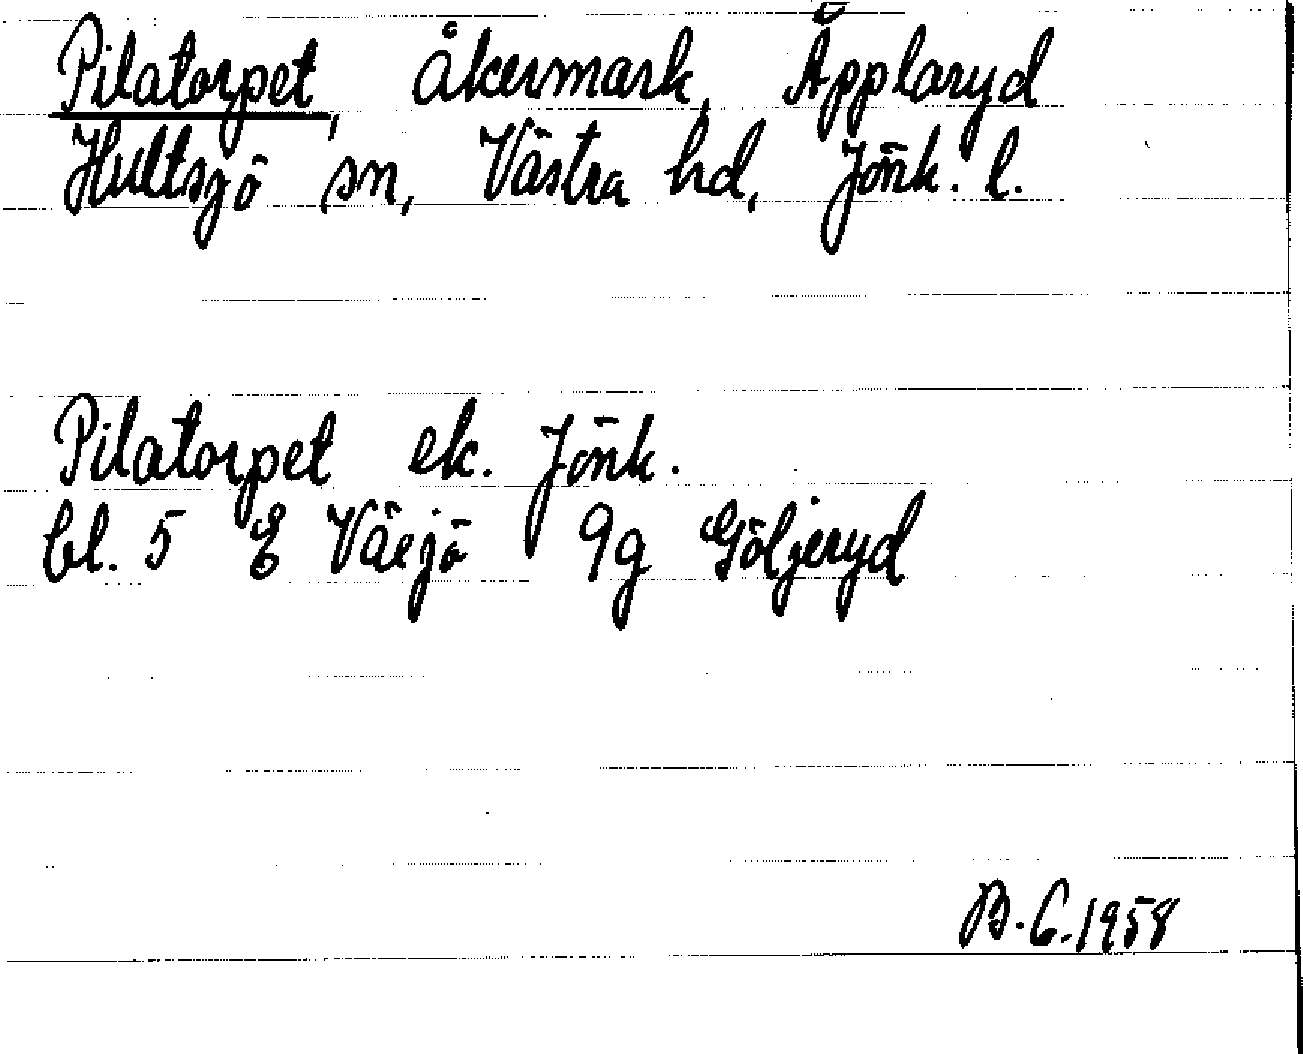 Pilatorpet, åkermark, Äpplaryd
Hultsjö sn, Västra hd, Jönk. l.
Pilatorpet ek. Jönk.
bl. 5 E Växjö 9g Göljeryd
B.C. 1958